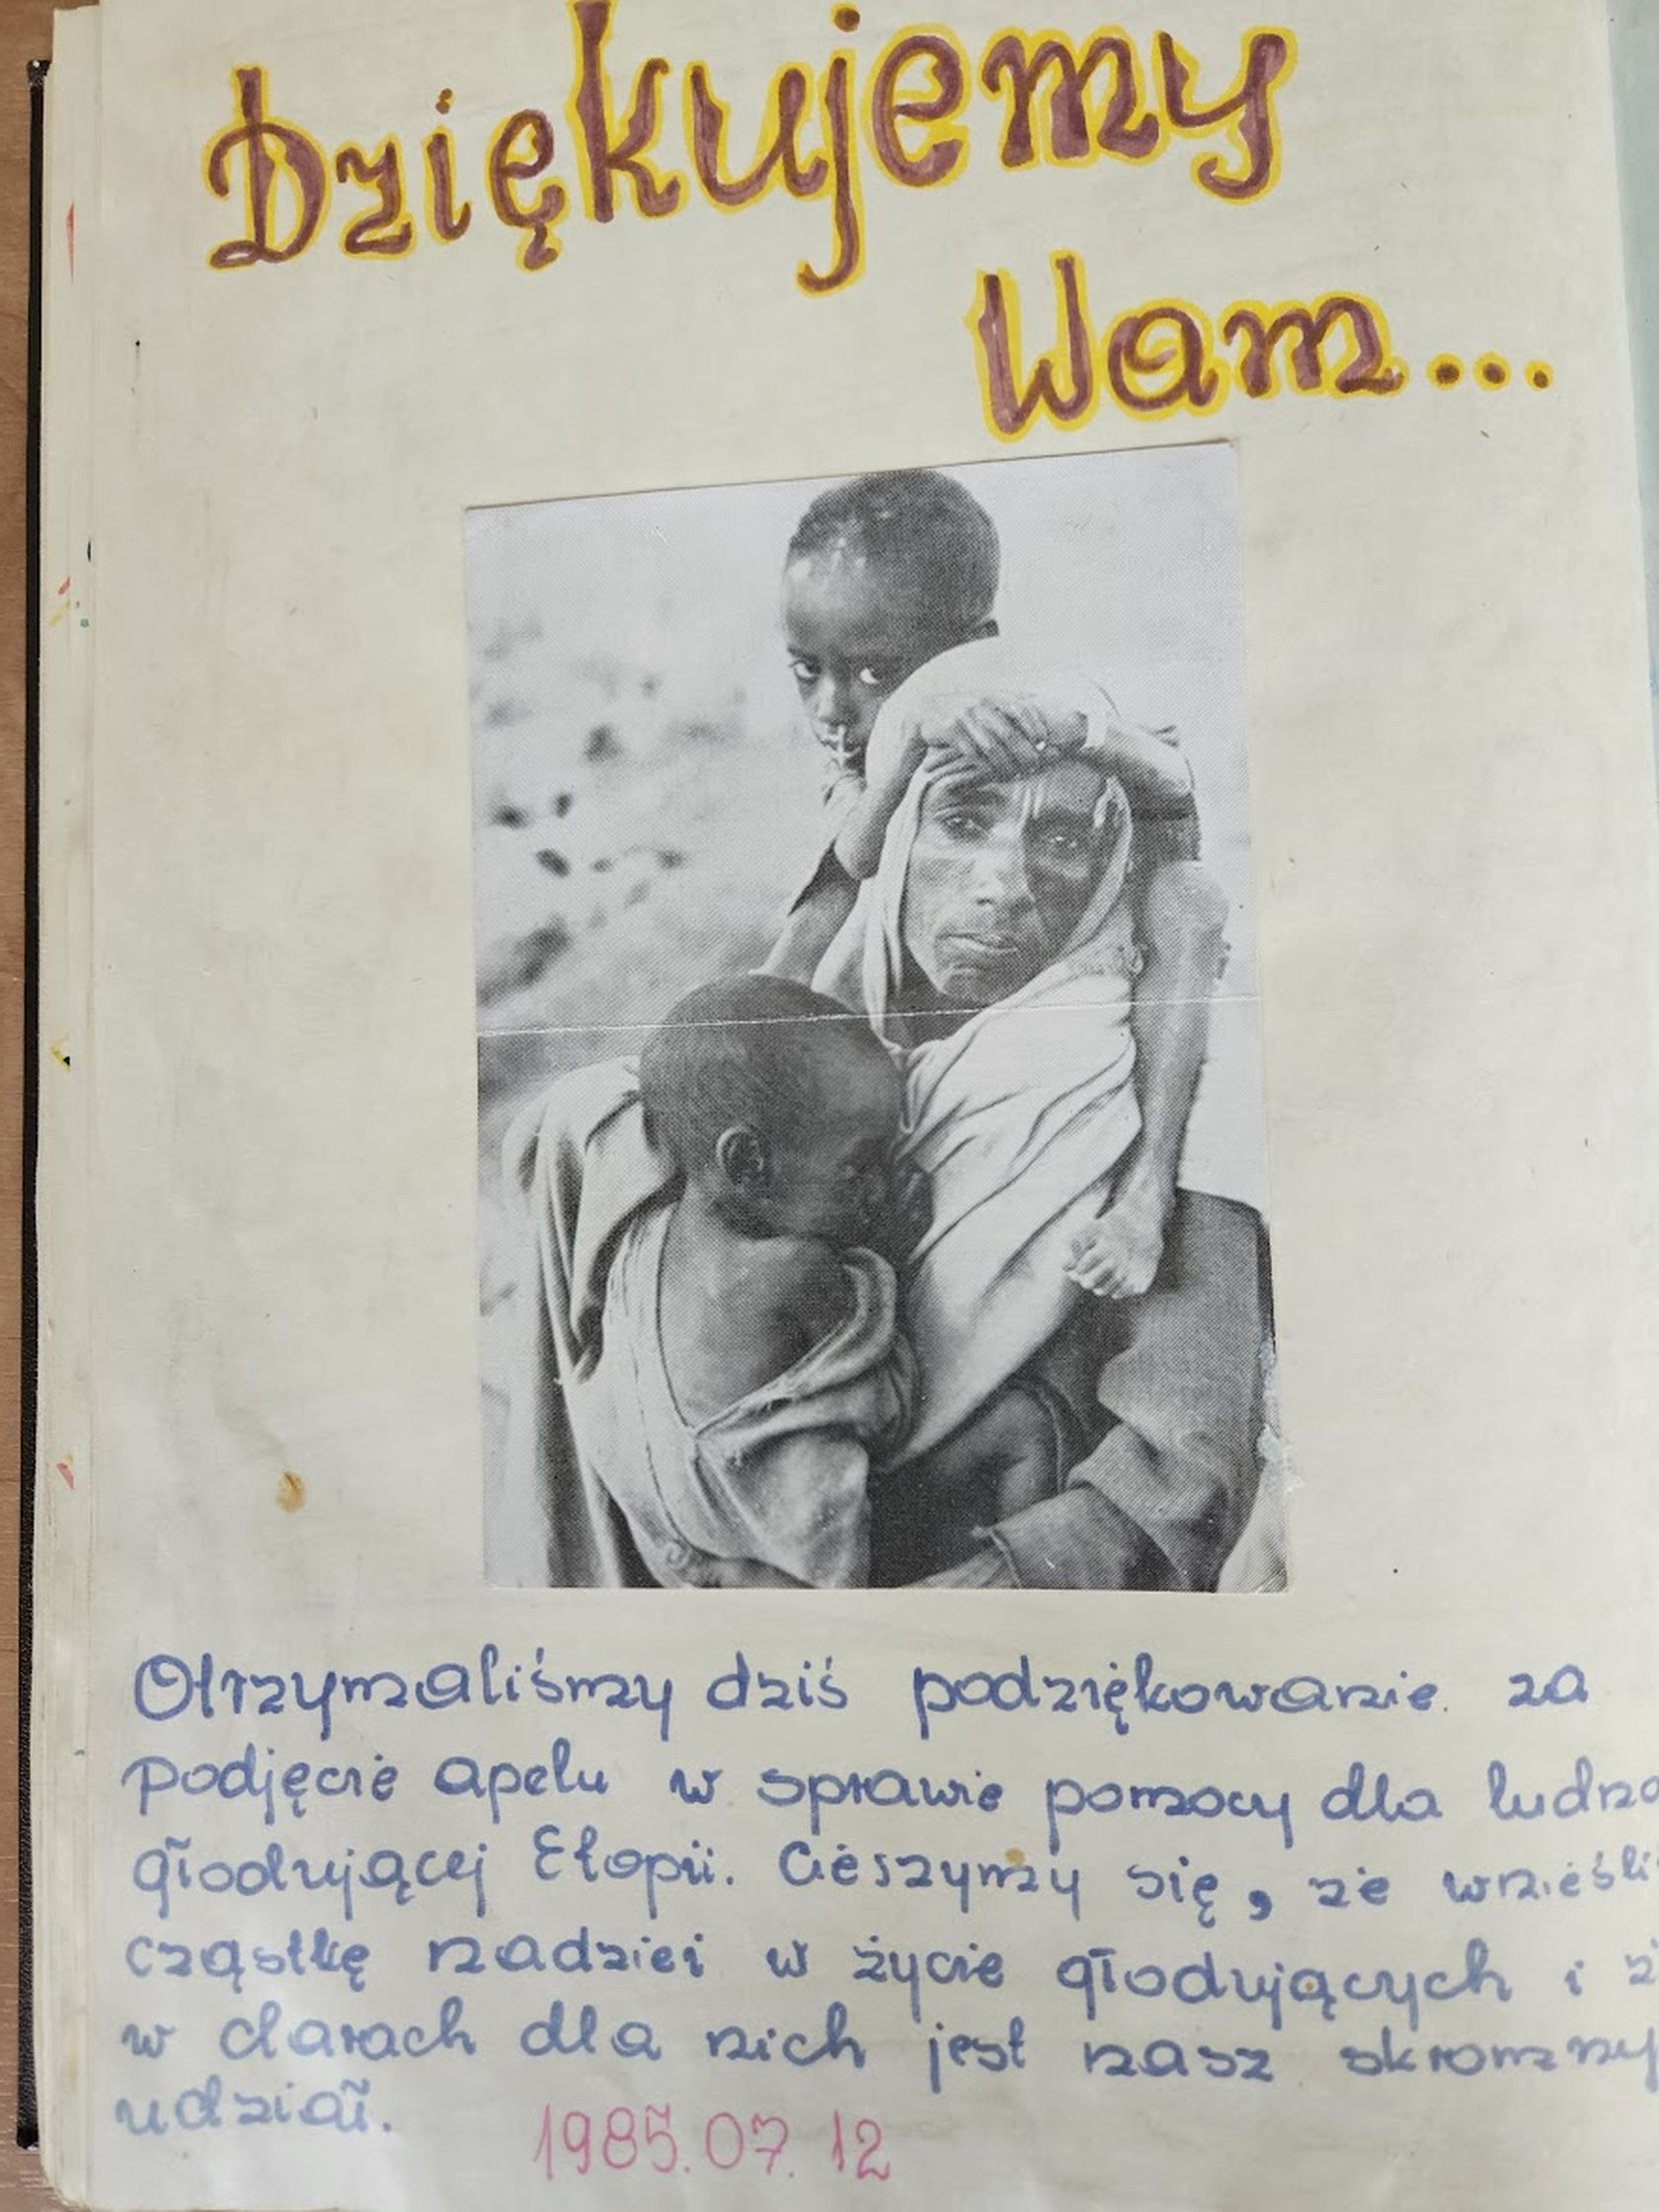 Dziękujemy
Wam...
Otrzymaliśmy dziś podziękowanie za
podjęcie apelu w sprawie pomocy dla ludno
głodującej Etiopii. Cieszymy się, że wnieśli
cząstkę nadziei w życie głodujących i ż
w darach dla nich jest nasz skromny
udział.
1985.07.12